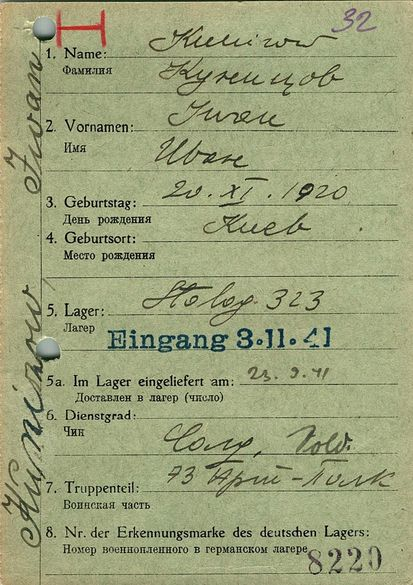 32
1. Name: Kunizow
Фамилия Куницов
2. Vornamen: Iwan
Имя Иван
3. Geburtstag: 20. XI. 1920
День рождения
4. Geburtsort: Киев
Место рождения
5. Lager: Stalag. 323
Лагер
Eingang 3.11.41
5a. Im Lager eingeliefert am: 23.9.41
Доставлен в лагер (число)
6. Dienstgrad:
Чин Солд. Sold.
7. Truppenteil: 73 Арт-Полк
Воинская часть
8. Nr. der Erkennungsmarke des deutschen Lagers:
Номер военнопленного в германском лагере 8220
Kunizow, Iwan